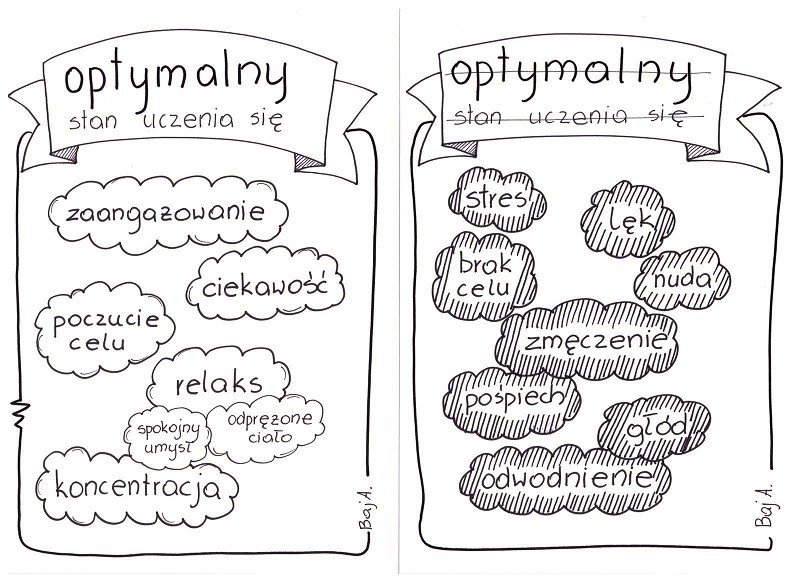 optymalny
stan uczenia się
zaangażowanie
ciekawość
poczucie
celu
relaks
spokojny
umysł
odprężone
ciało
koncentracja
Baj A.
optymalny
stan uczenia się
stres
lęk
brak
celu
nuda
zmęczenie
pośpiech
głód
odwodnienie
Baj A.